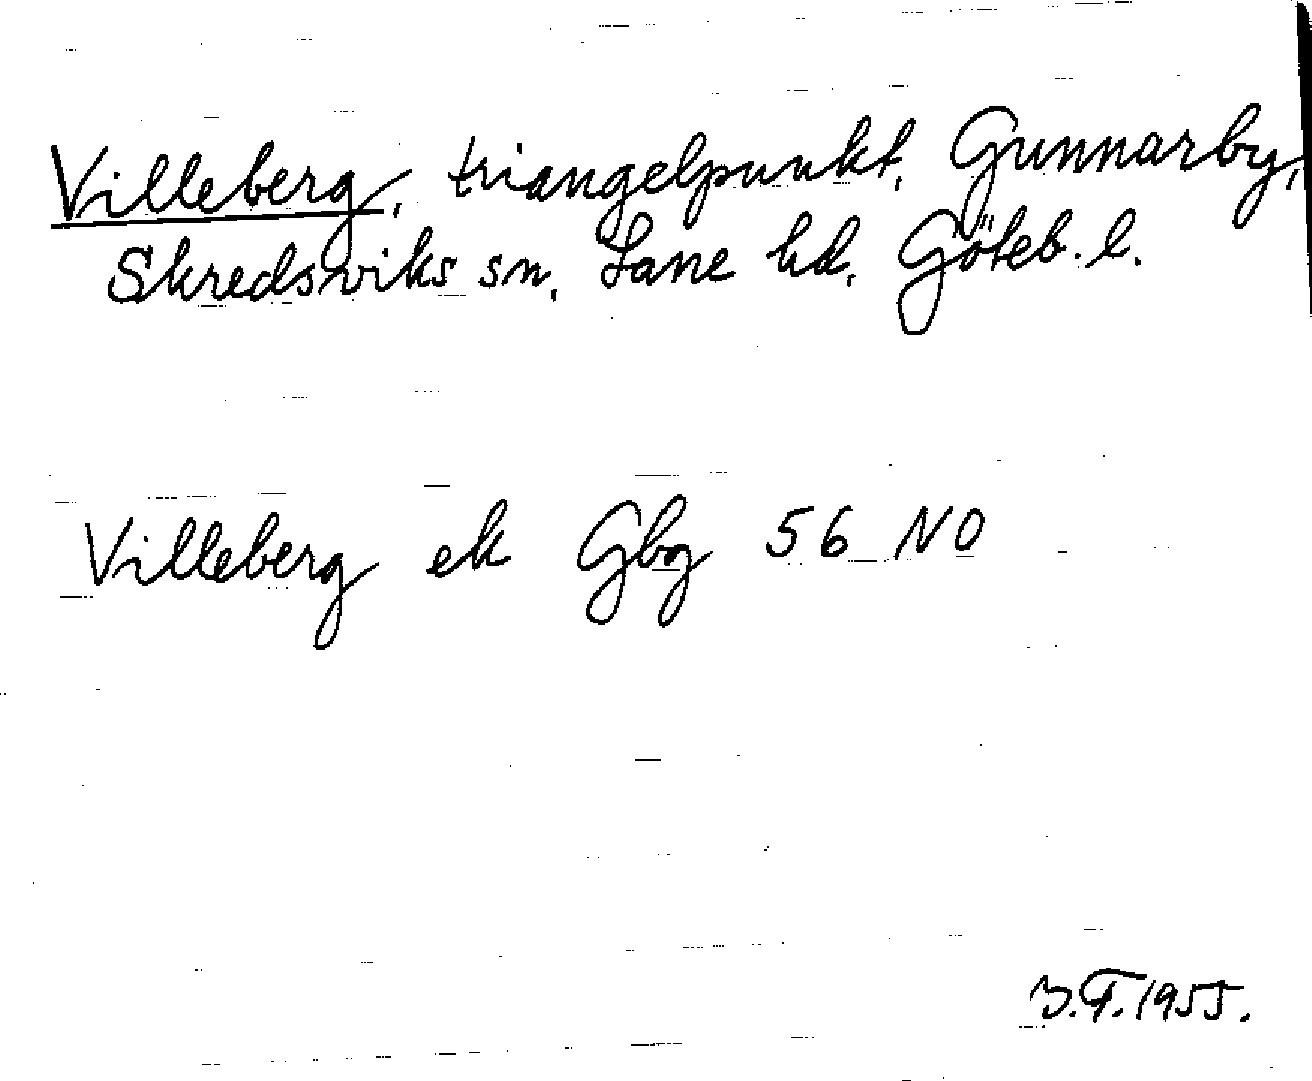 Villeberg, triangelpunkt, Gunnarby,
Skredsviks sn, Lane hd, Göteb. l.
Villeberg ek Gbg 56 NO
1955.